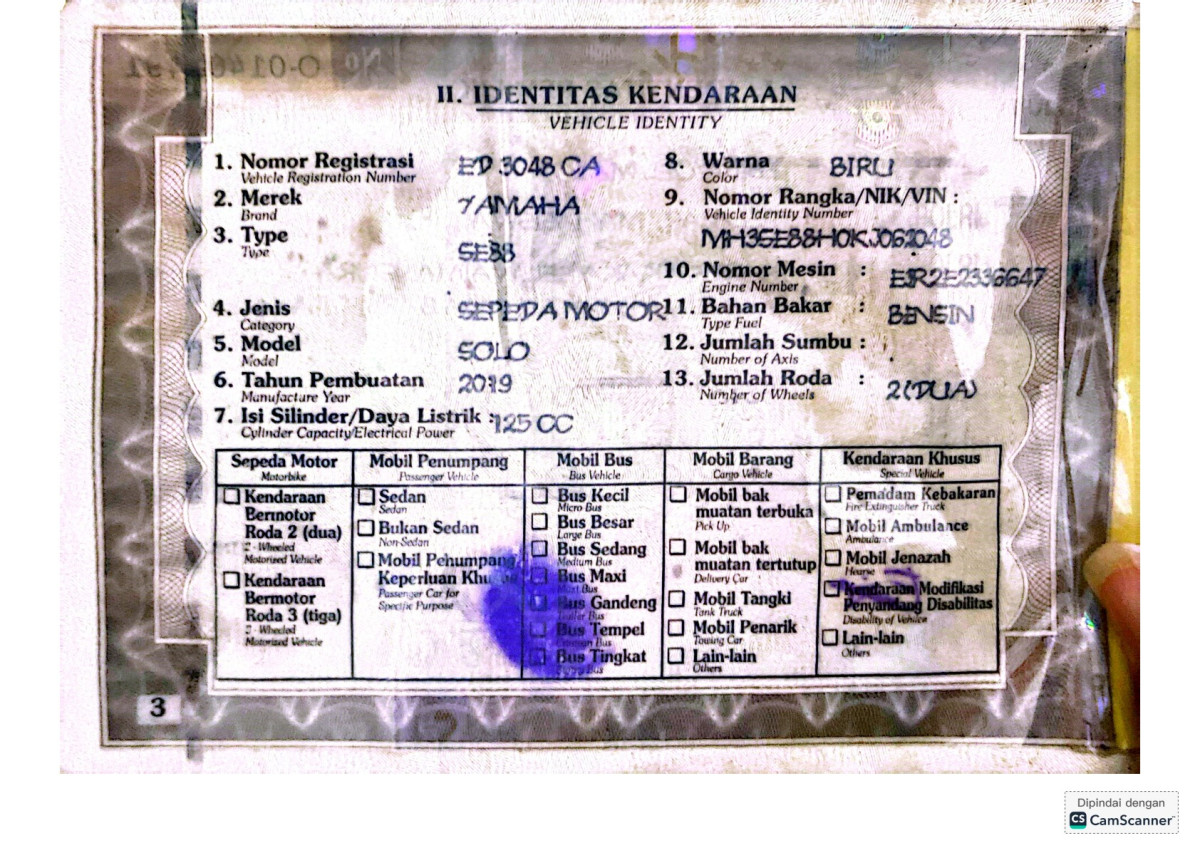 II. IDENTITAS KENDARAAN
VEHICLE IDENTITY
1. Nomor Registrasi ED 3048 CA
Vehicle Registration Number
2. Merek YAMAHA
Brand
3. Type SE88
Type
4. Jenis SEPEDA MOTOR
Category
5. Model SOLO
Model
6. Tahun Pembuatan 2019
Manufacture Year
7. Isi Silinder/Daya Listrik : 125 CC
Cylinder Capacity/Electrical Power
8. Warna BIRU
Color
9. Nomor Rangka/NIK/VIN :
Vehicle Identity Number
MH3SE88H0KJ062048
10. Nomor Mesin : E3R2E2336647
Engine Number
11. Bahan Bakar : BENSIN
Type Fuel
12. Jumlah Sumbu :
Number of Axis
13. Jumlah Roda : 2 (DUA)
Number of Wheels
Sepeda Motor
Motorbike
Kendaraan
Bermotor
Roda 2 (dua)
2 - Wheeled
Motorized Vehicle
Kendaraan
Bermotor
Roda 3 (tiga)
3 - Wheeled
Motorized Vehicle
Mobil Penumpang
Passenger Vehicle
Sedan
Sedan
Bukan Sedan
Non-Sedan
Mobil Penumpang
Keperluan Khusus
Passenger Car for
Specific Purpose
Mobil Bus
Bus Vehicle
Bus Kecil
Micro Bus
Bus Besar
Large Bus
Bus Sedang
Medium Bus
Bus Maxi
Maxi Bus
Bus Gandeng
Bus
Bus Tempel
Bus
Bus Tingkat
Bus
Mobil Barang
Cargo Vehicle
Mobil bak
muatan terbuka
Pick Up
Mobil bak
muatan tertutup
Delivery Car
Mobil Tangki
Tank Truck
Mobil Penarik
Towing Car
Lain-lain
Others
Kendaraan Khusus
Special Vehicle
Pemadam Kebakaran
Fire Extinguisher Truck
Mobil Ambulance
Ambulance
Mobil Jenazah
Hearse
Kendaraan Modifikasi
Penyandang Disabilitas
Disability of Vehilce
Lain-lain
Others
3
Dipindai dengan
CS CamScanner